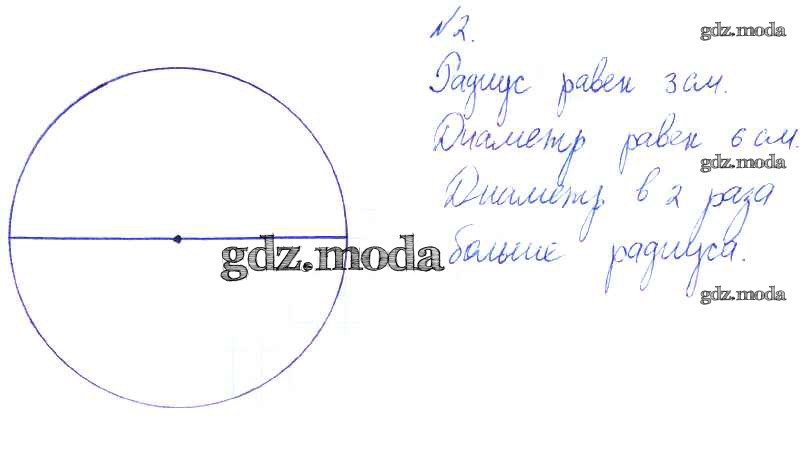 №2.
gdz.moda
Радиус равен 3 см.
Диаметр равен 6 см.
gdz.moda
Диаметр в 2 раза
gdz.moda
больше радиуса.
gdz.moda